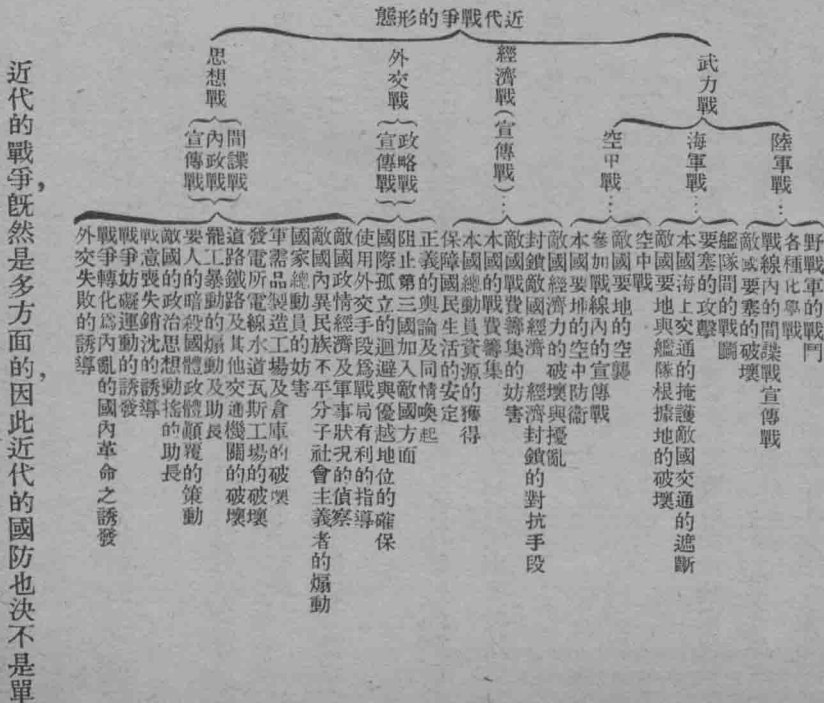 近代戰爭的形態
武力戰
陸軍戰…
野戰軍的戰鬥
各種化學戰
戰線內的間諜戰宣傳戰
敵國要塞的破壞
海軍戰…
艦隊間的戰鬭
要塞的攻擊
本國海上交通的掩護敵國交通的遮斷
敵國要地與艦隊根據地的破壞
空中戰…
空中戰
敵國要地的空襲
參加戰線內的宣傳戰
本國要地的空中防衞
經濟戰(宣傳戰)…
敵國經濟力的破壞與擾亂
封鎖敵國經濟 經濟封鎖的對抗手段
敵國戰費籌集的妨害
本國的戰費籌集
本國總動員資源的獲得
保障國民生活的安定
外交戰
政略戰
宣傳戰
正義的輿論及同情喚起
阻止第三國加入敵國方面
國際孤立的迴避與優越地位的確保
使用外交手段爲戰局有利的指導
思想戰
間諜戰
內政戰
宣傳戰
敵國政情經濟及軍事狀況的偵察
敵國內異民族不平分子社會主義者的煽動
國家總動員的妨害
軍需品製造工場及倉庫的破壞
發電所電線水道瓦斯工場的破壞
道路鐵路及其他交通機關的破壞
罷工暴動的煽動及助長
要人的暗殺國體政體顚覆的策動
敵國的政治思想動搖的助長
戰意喪失銷沈的誘導
戰爭妨礙運動的誘發
戰爭轉化爲內亂的國內革命之誘發
外交失敗的誘導
近代的戰爭，旣然是多方面的，因此近代的國防也決不是單